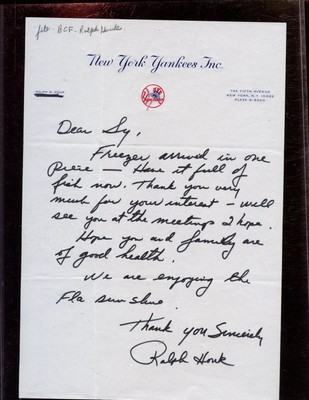 file - BCF - Ralph Houk
New York Yankees Inc.
RALPH G. HOUK
745 FIFTH AVENUE
NEW YORK, N.Y. 10022
Dear Sy,
Freezer arrived in one
Peice — Have it full of
fish now. Thank you very
much for your interest - will
see you at the meetings I hope.
Hope you and family are
of good health.
We are enjoying the
Fla sunshine.
Thank you Sincerely
Ralph Houk